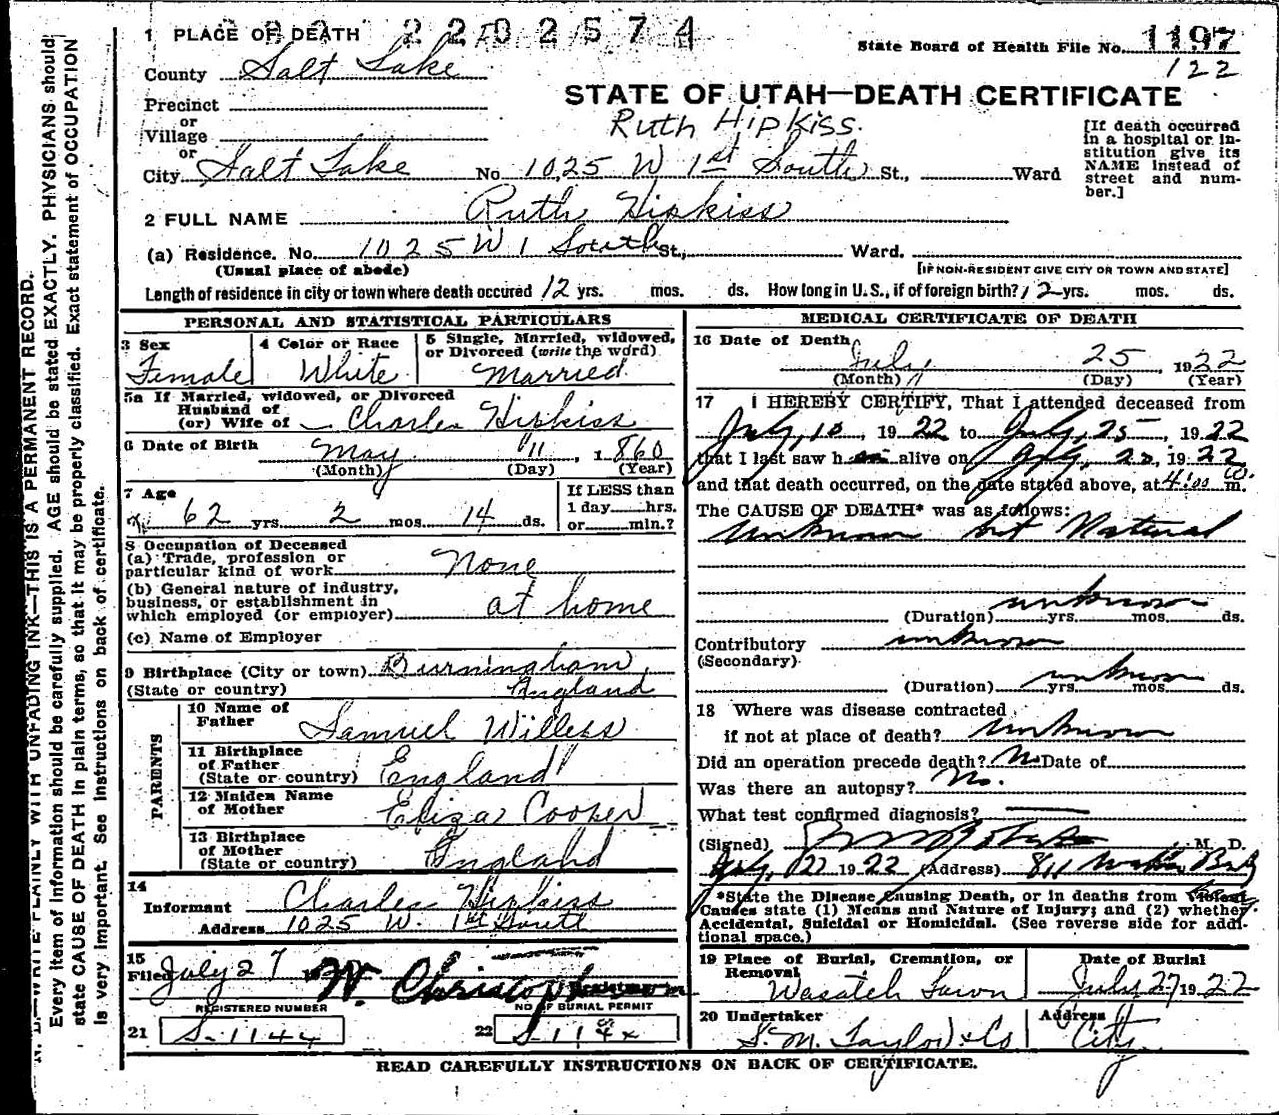 1 PLACE OF DEATH 2202574
State Board of Health File No. 1197
County Salt Lake
122
STATE OF UTAH—DEATH CERTIFICATE
Precinct
or
Village
or
Ruth Hipkiss.
[If death occurred in a hospital or institution give its NAME instead of street and number.]
City Salt Lake No 1025 W 1st South St., Ward
2 FULL NAME Ruth Hipkiss
(a) Residence. No. 1025 W 1 South St., Ward.
(Usual place of abode) [IF NON-RESIDENT GIVE CITY OR TOWN AND STATE]
Length of residence in city or town where death occured 12 yrs. mos. ds. How long in U.S., if of foreign birth? 12 yrs. mos. ds.
PERSONAL AND STATISTICAL PARTICULARS
3 Sex
Female
4 Color or Race
White
5 Single, Married, widowed,
or Divorced (write the word)
Married
5a If Married, widowed, or Divorced
Husband of
(or) Wife of Charles Hipkiss
6 Date of Birth May 11, 1860
(Month) (Day) (Year)
7 Age
62 yrs. 2 mos. 14 ds.
If LESS than
1 day hrs.
or min.?
8 Occupation of Deceased
(a) Trade, profession or
particular kind of work None
(b) General nature of industry,
business, or establishment in
which employed (or employer) at home
(c) Name of Employer
9 Birthplace (City or town) Burningham
(State or country) England
PARENTS
10 Name of
Father Samuel Willess
11 Birthplace
of Father
(State or country) England
12 Maiden Name
of Mother Eliza Cooper
13 Birthplace
of Mother
(State or country) England
14
Informant Charles Hipkiss
Address 1025 W. 1st South
15
Filed July 27 W. Christoph
REGISTERED NUMBER NO OF BURIAL PERMIT
21 S-1144 22 S-1144
MEDICAL CERTIFICATE OF DEATH
16 Date of Death
July 25 1922
(Month) (Day) (Year)
17 I HEREBY CERTIFY, That I attended deceased from
July, 10, 1922 to July, 25, 1922
that I last saw h alive on July, 1922
and that death occurred, on the date stated above, at 4:00 m.
The CAUSE OF DEATH* was as follows:
unknown but Natural
unknown
(Duration) yrs. mos. ds.
Contributory unknown
(Secondary)
unknown
(Duration) yrs. mos. ds.
18 Where was disease contracted
if not at place of death? unknown
Did an operation precede death? No Date of
Was there an autopsy? No.
What test confirmed diagnosis?
(Signed) M. D.
July, 1922 (Address) 811
*State the Disease Causing Death, or in deaths from Violent
Causes state (1) Means and Nature of Injury; and (2) whether
Accidental, Suicidal or Homicidal. (See reverse side for addi-
tional space.)
19 Place of Burial, Cremation, or
Removal
Wasatch Lawn
Date of Burial
July 27 1922
20 Undertaker
S. M. Taylor & Co
Address
City
READ CAREFULLY INSTRUCTIONS ON BACK OF CERTIFICATE.
WRITE PLAINLY WITH UNFADING INK—THIS IS A PERMANENT RECORD.
Every item of information should be carefully supplied. AGE should be stated EXACTLY. PHYSICIANS should
state CAUSE OF DEATH in plain terms, so that it may be properly classified. Exact statement of OCCUPATION
is very important. See instructions on back of certificate.